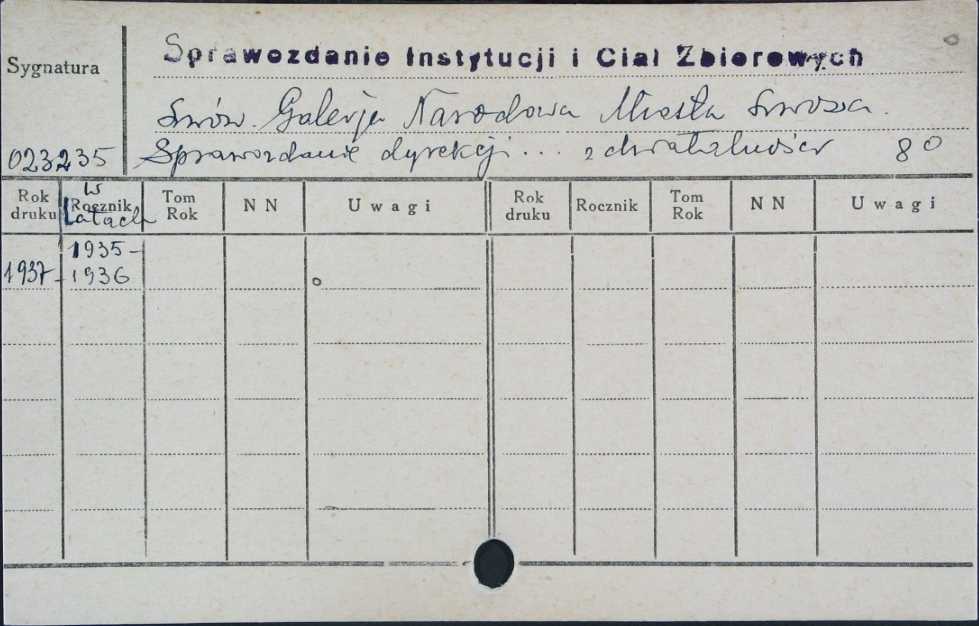 Sprawozdanie Instytucji i Ciał Zbiorowych
Sygnatura
Lwów. Galerja Narodowa Miasta Lwowa.
023235 Sprawozdanie dyrekcji... z działalności 8°
Rok druku w Rocznik Latach Tom Rok NN Uwagi Rok druku Rocznik Tom Rok NN Uwagi
1935-
1937 1936